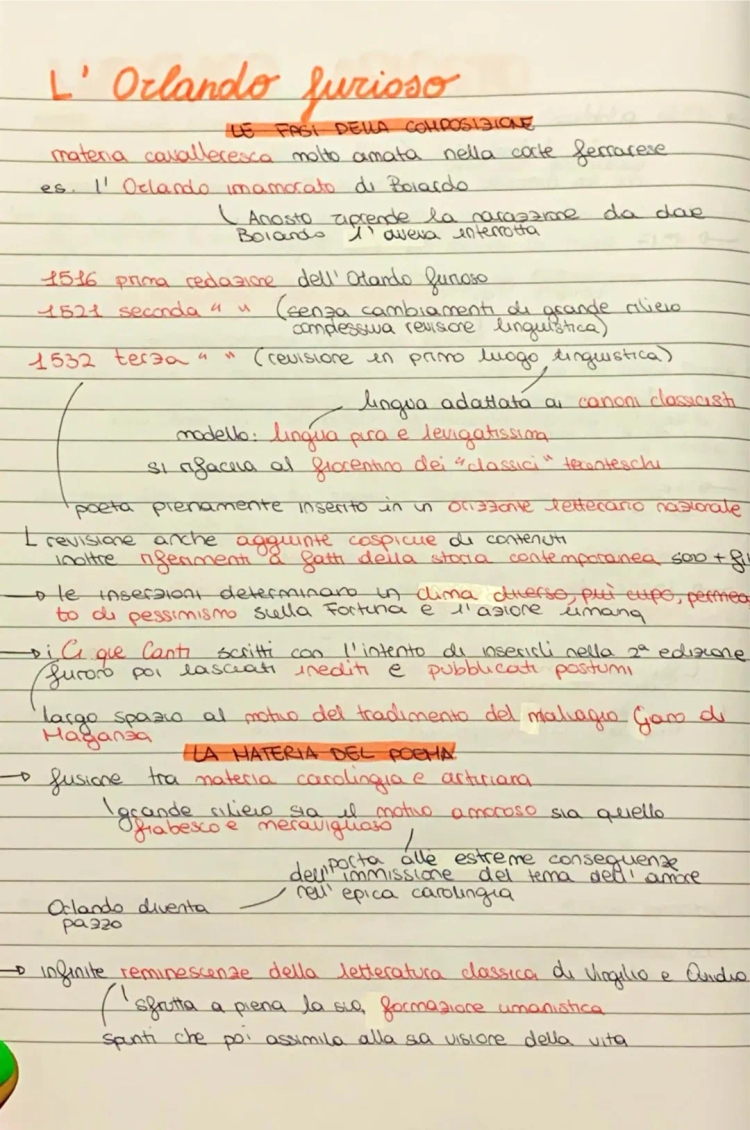 L' Orlando furioso
LE FASI DELLA COMPOSIZIONE
materia cavalleresca molto amata nella corte ferrarese
es. l' Orlando innamorato di Boiardo
Ariosto riprende la narrazione da dove
Boiardo l'aveva interrotta
1516 prima redazione dell'Orlando furioso
1521 seconda " " (senza cambiamenti di grande rilievo
complessiva revisione linguistica)
1532 terza " " (revisione in primo luogo linguistica)
lingua adattata ai canoni classicisti
modello: lingua pura e levigatissima
si rifaceva al fiorentino dei "classici" trecenteschi
poeta pienamente inserito in un orizzonte letterario nazionale
revisione anche aggiunte cospicue di contenuti
inoltre riferimenti a fatti della storia contemporanea sono + fi
→ le inserzioni determinano un clima diverso, più cupo, permea
to di pessimismo sulla Fortuna e l'azione umana
→ i Cinque Canti scritti con l'intento di inserirli nella 2ª edizione
furono poi lasciati inediti e pubblicati postumi
largo spazio al motivo del tradimento del malvagio Gano di
Maganza
LA MATERIA DEL POEMA
→ fusione tra materia carolingia e arturiana
grande rilievo sia il motivo amoroso sia quello
fiabesco e meraviglioso
porta alle estreme conseguenze
dell'immissione del tema dell'amore
nell'epica carolingia
Orlando diventa
pazzo
→ infinite reminescenze della letteratura classica di Virgilio e Ovidio
sfrutta a piena la sua formazione umanistica
spunti che poi assimila alla sua visione della vita